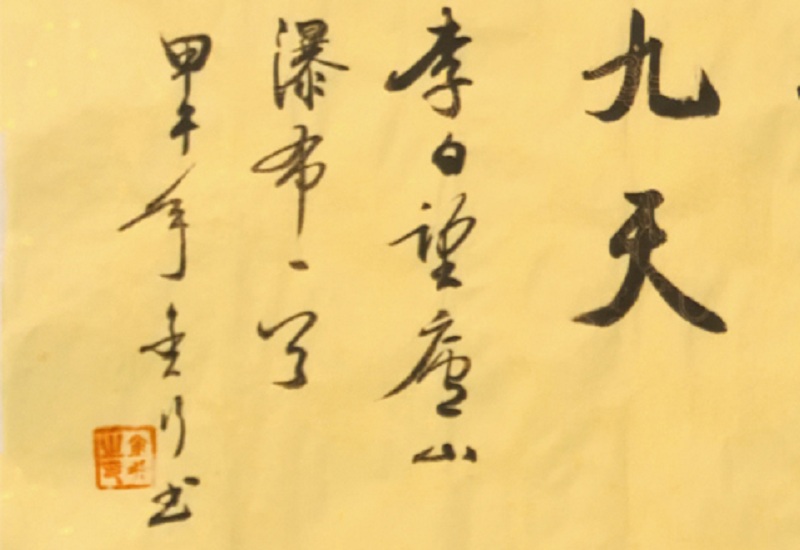 九天
李白望廬山
瀑布一首
甲午年
书